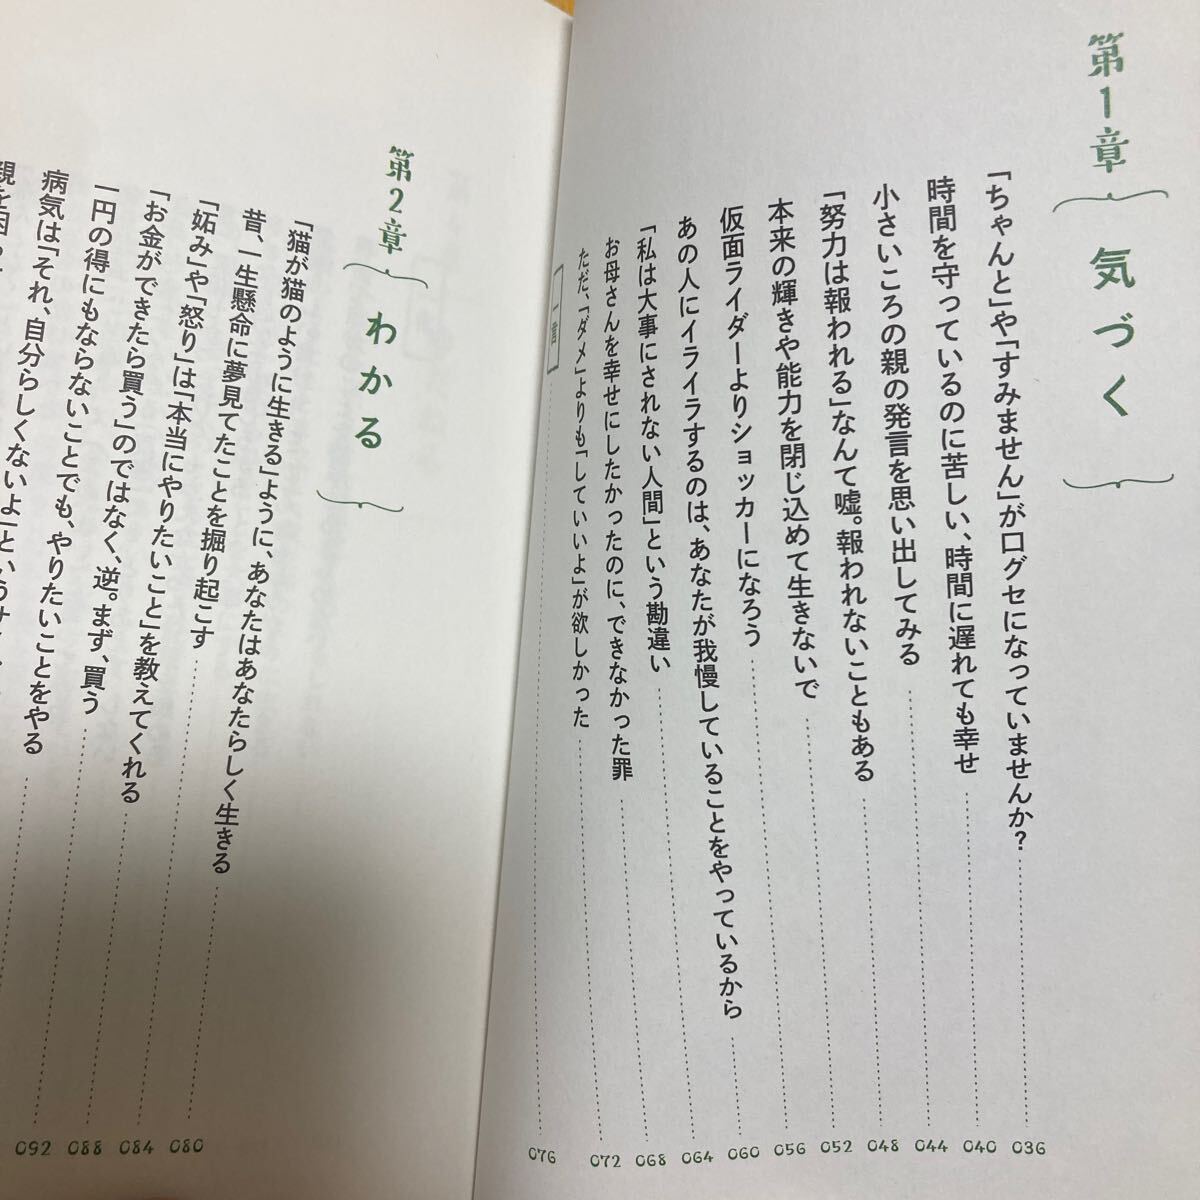 第1章 気づく
「ちゃんと」や「すみません」が口グセになっていませんか? 036
時間を守っているのに苦しい、時間に遅れても幸せ 040
小さいころの親の発言を思い出してみる 044
「努力は報われる」なんて嘘。報われないこともある 048
本来の輝きや能力を閉じ込めて生きないで 052
仮面ライダーよりショッカーになろう 056
あの人にイライラするのは、あなたが我慢していることをやっているから 060
「私は大事にされない人間」という勘違い 064
お母さんを幸せにしたかったのに、できなかった罪 068
ただ、「ダメ」よりも「していいよ」が欲しかった 072
一言 076
第2章 わかる
「猫が猫のように生きる」ように、あなたはあなたらしく生きる 080
昔、一生懸命に夢見てたことを掘り起こす 084
「妬み」や「怒り」は「本当にやりたいこと」を教えてくれる 088
「お金ができたら買う」のではなく、逆。まず、買う 092
一円の得にもならないことでも、やりたいことをやる
病気は「それ、自分らしくないよ」という
親を困っ